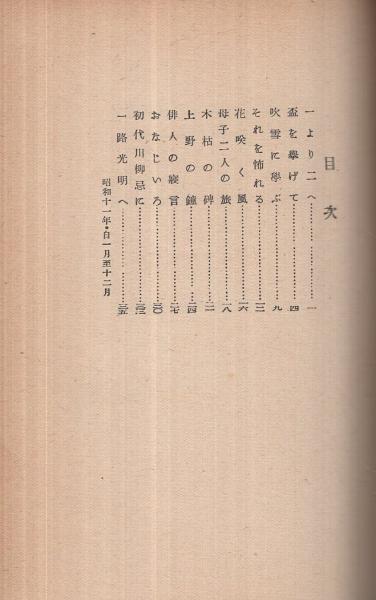 目次
一より二へ……………一
盃を擧げて……………四
吹雪に學ぶ……………九
それを怖れる……………一三
花咲く風……………一六
母子二人の旅……………一八
木枯の碑……………二一
上野の鐘……………二四
俳人の寢言……………二七
おなじいろ……………三〇
初代川柳忌に……………三三
一路光明へ……………三五
昭和十一年・自一月至十二月